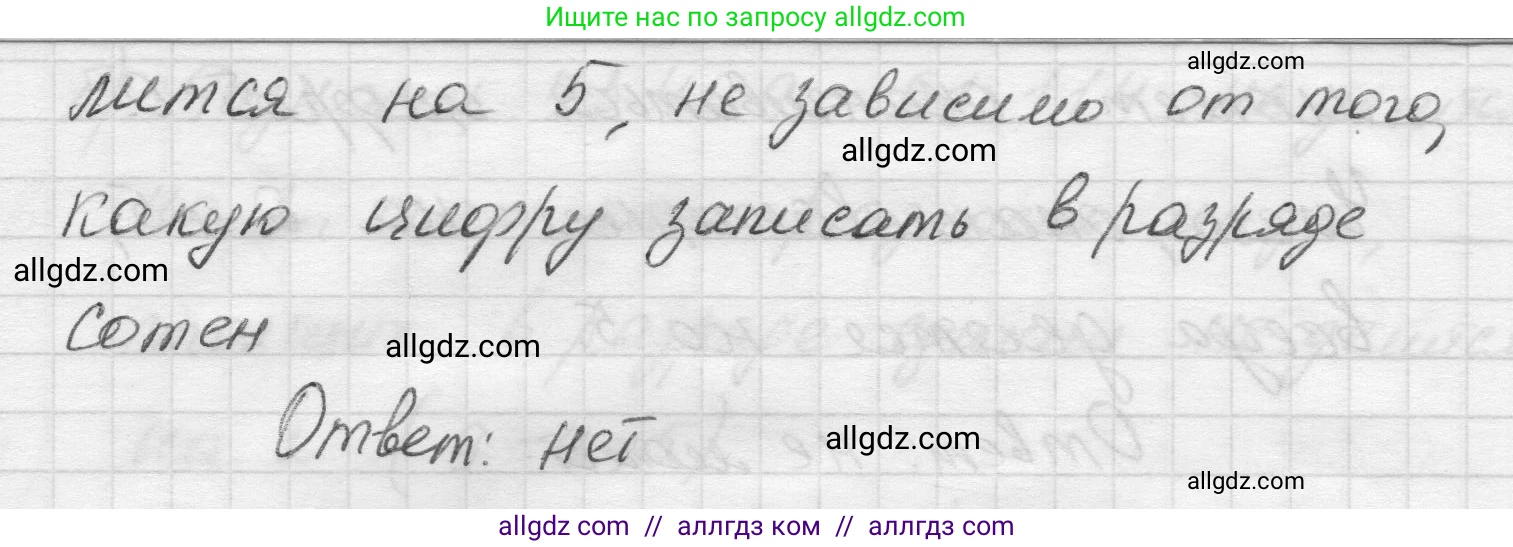 Ищите нас по запросу allgdz.com
allgdz.com
лится на 5, не зависимо от того,
allgdz.com
какую цифру записать в разряде
allgdz.com
сотен
allgdz.com
Ответ: нет
allgdz.com
allgdz.com
allgdz com // аллгдз ком // аллгдз com